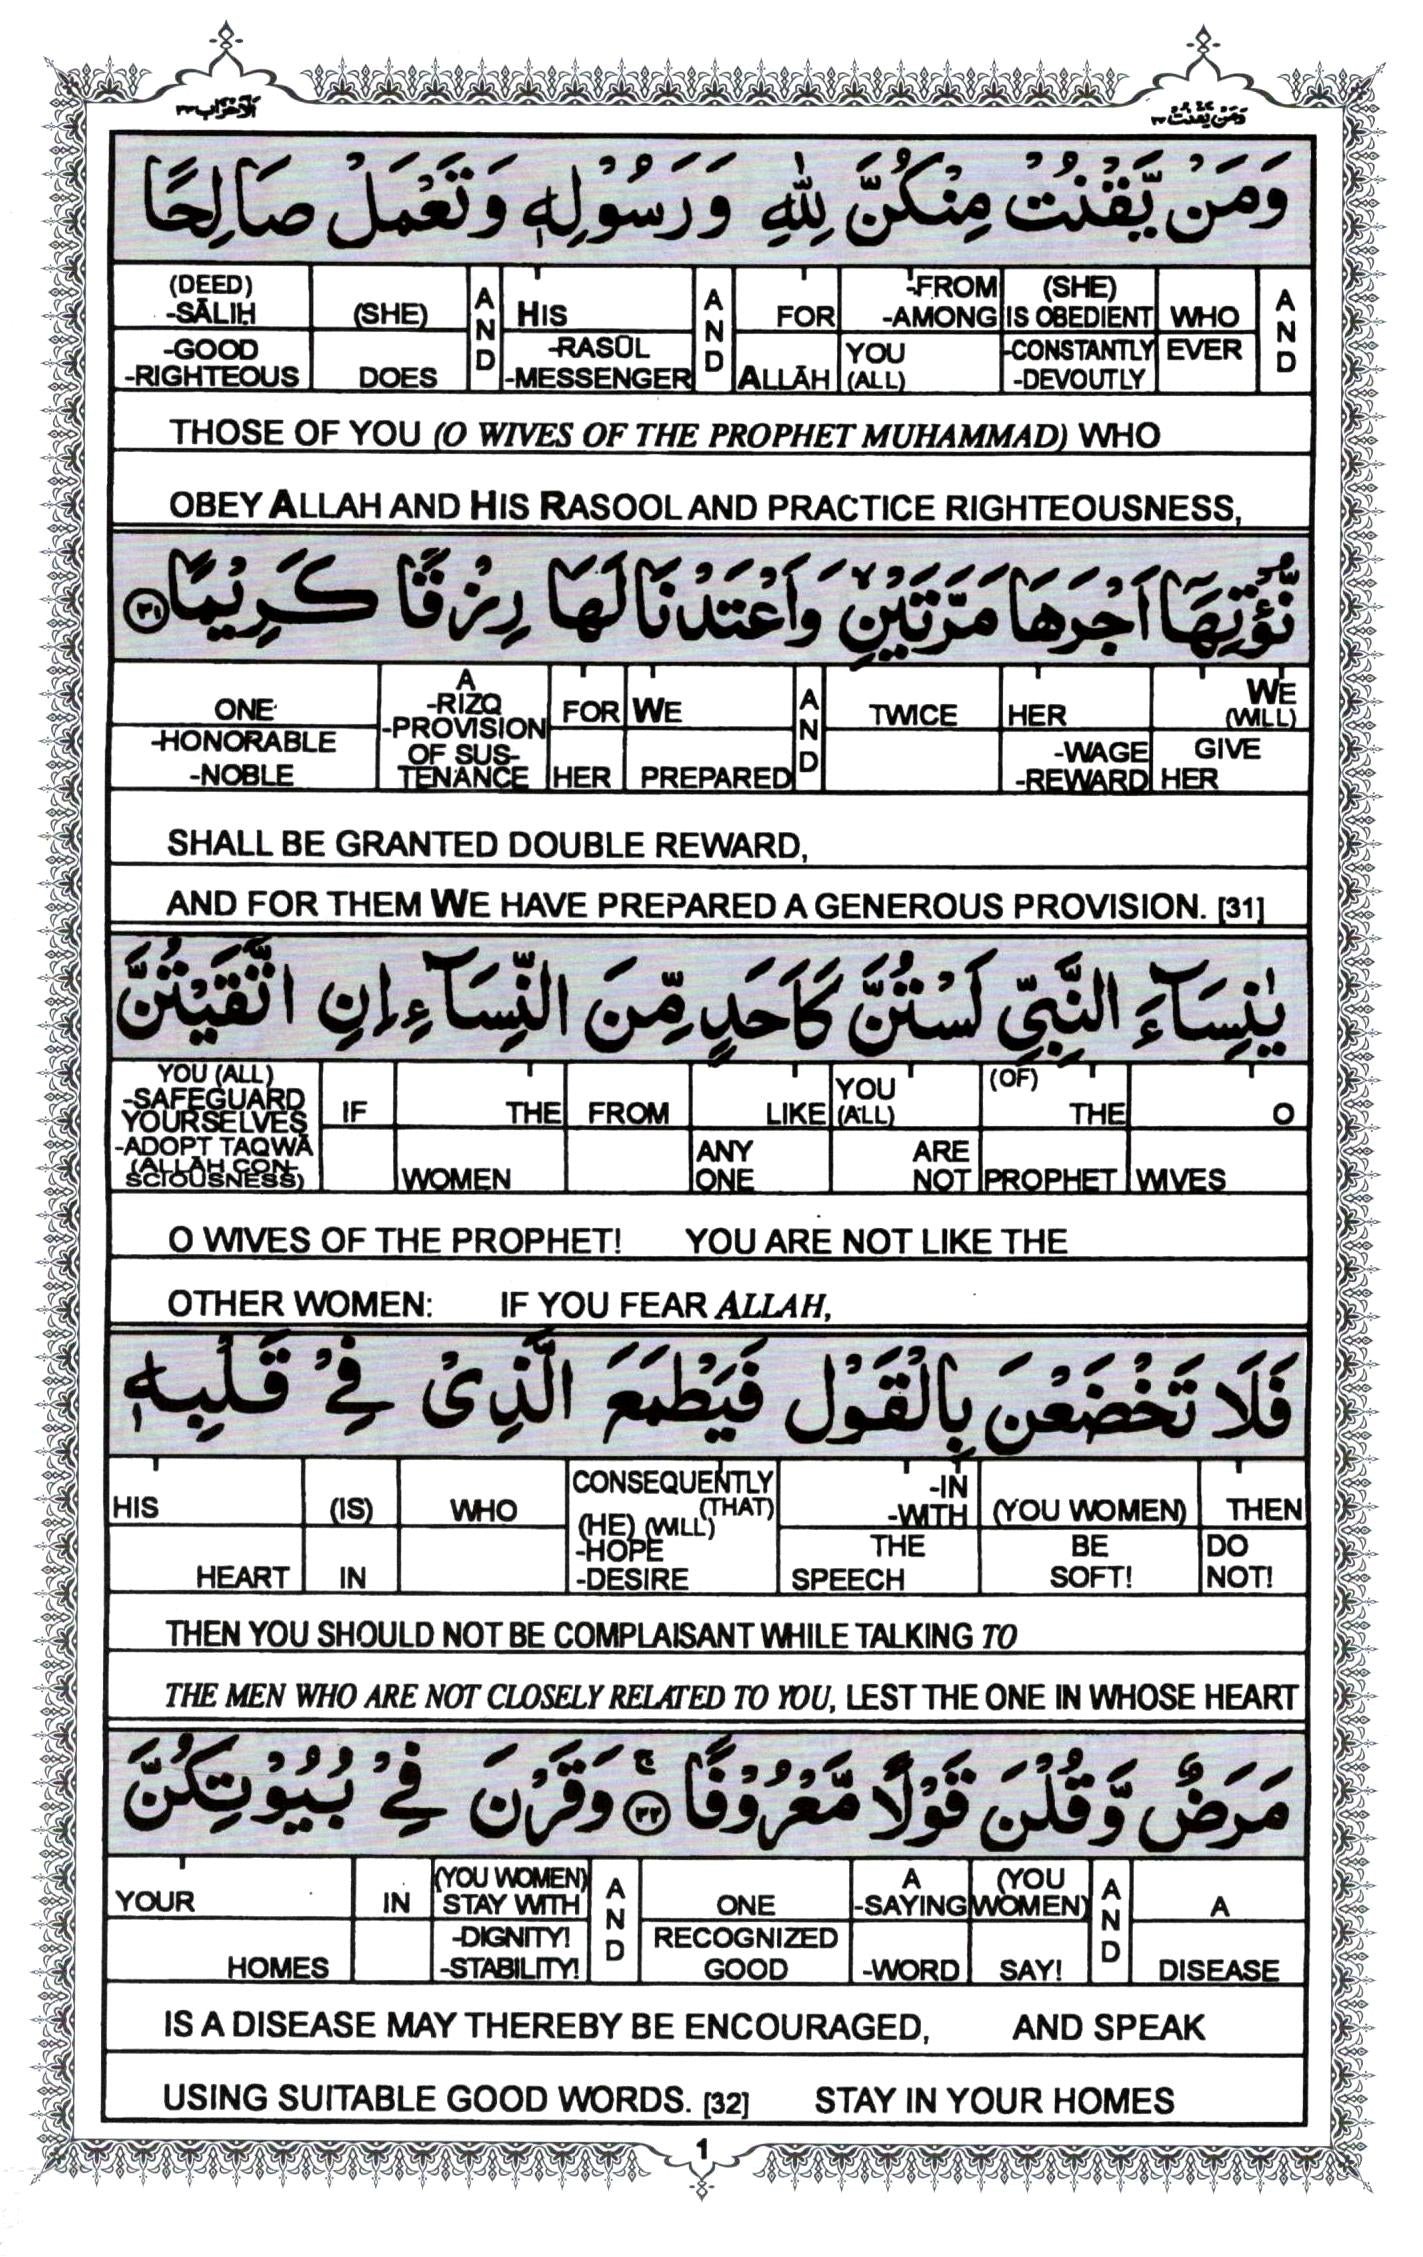 الاحزاب ٣٣
ومن يقنت ٢٢
وَمَنْ يَّقْنُتْ مِنْكُنَّ لِلّٰهِ وَرَسُوْلِهٖ وَتَعْمَلْ صَالِحًا
(DEED) -SĀLIḤ -GOOD -RIGHTEOUS
(SHE) DOES
AND
HIS -RASŪL -MESSENGER
AND
FOR ALLĀH
-FROM -AMONG YOU (ALL)
(SHE) IS OBEDIENT -CONSTANTLY -DEVOUTLY
WHO EVER
AND
THOSE OF YOU (O WIVES OF THE PROPHET MUHAMMAD) WHO
OBEY ALLAH AND HIS RASOOL AND PRACTICE RIGHTEOUSNESS,
نُّؤْتِهَآ اَجْرَهَا مَرَّتَيْنِ ۙ وَاَعْتَدْنَا لَهَا رِزْقًا كَرِيْمًا ٣١
ONE -HONORABLE -NOBLE
A -RIZQ -PROVISION OF SUS-TENANCE
FOR HER
WE PREPARED
AND
TWICE
HER -WAGE -REWARD
WE (WILL) GIVE HER
SHALL BE GRANTED DOUBLE REWARD,
AND FOR THEM WE HAVE PREPARED A GENEROUS PROVISION. [31]
يٰنِسَآءَ النَّبِيِّ لَسْتُنَّ كَاَحَدٍ مِّنَ النِّسَآءِ اِنِ اتَّقَيْتُنَّ
YOU (ALL) -SAFEGUARD YOURSELVES -ADOPT TAQWĀ (ALLĀH CON-SCIOUSNESS)
IF
THE WOMEN
FROM
LIKE ANY ONE
YOU (ALL) ARE NOT
(OF) THE PROPHET
O WIVES
O WIVES OF THE PROPHET! YOU ARE NOT LIKE THE
OTHER WOMEN: IF YOU FEAR ALLAH,
فَلَا تَخْضَعْنَ بِالْقَوْلِ فَيَطْمَعَ الَّذِىْ فِىْ قَلْبِهٖ
HIS HEART
(IS) IN
WHO
CONSEQUENTLY (THAT) (HE) (WILL) -HOPE -DESIRE
-IN -WITH THE SPEECH
(YOU WOMEN) BE SOFT!
THEN DO NOT!
THEN YOU SHOULD NOT BE COMPLAISANT WHILE TALKING TO
THE MEN WHO ARE NOT CLOSELY RELATED TO YOU, LEST THE ONE IN WHOSE HEART
مَرَضٌ وَّقُلْنَ قَوْلًا مَّعْرُوْفًا ۚ ٣٢ وَقَرْنَ فِىْ بُيُوْتِكُنَّ
YOUR HOMES
IN
(YOU WOMEN) STAY WITH -DIGNITY! -STABILITY!
AND
ONE RECOGNIZED GOOD
A -SAYING -WORD
(YOU WOMEN) SAY!
AND
A DISEASE
IS A DISEASE MAY THEREBY BE ENCOURAGED, AND SPEAK
USING SUITABLE GOOD WORDS. [32] STAY IN YOUR HOMES
1